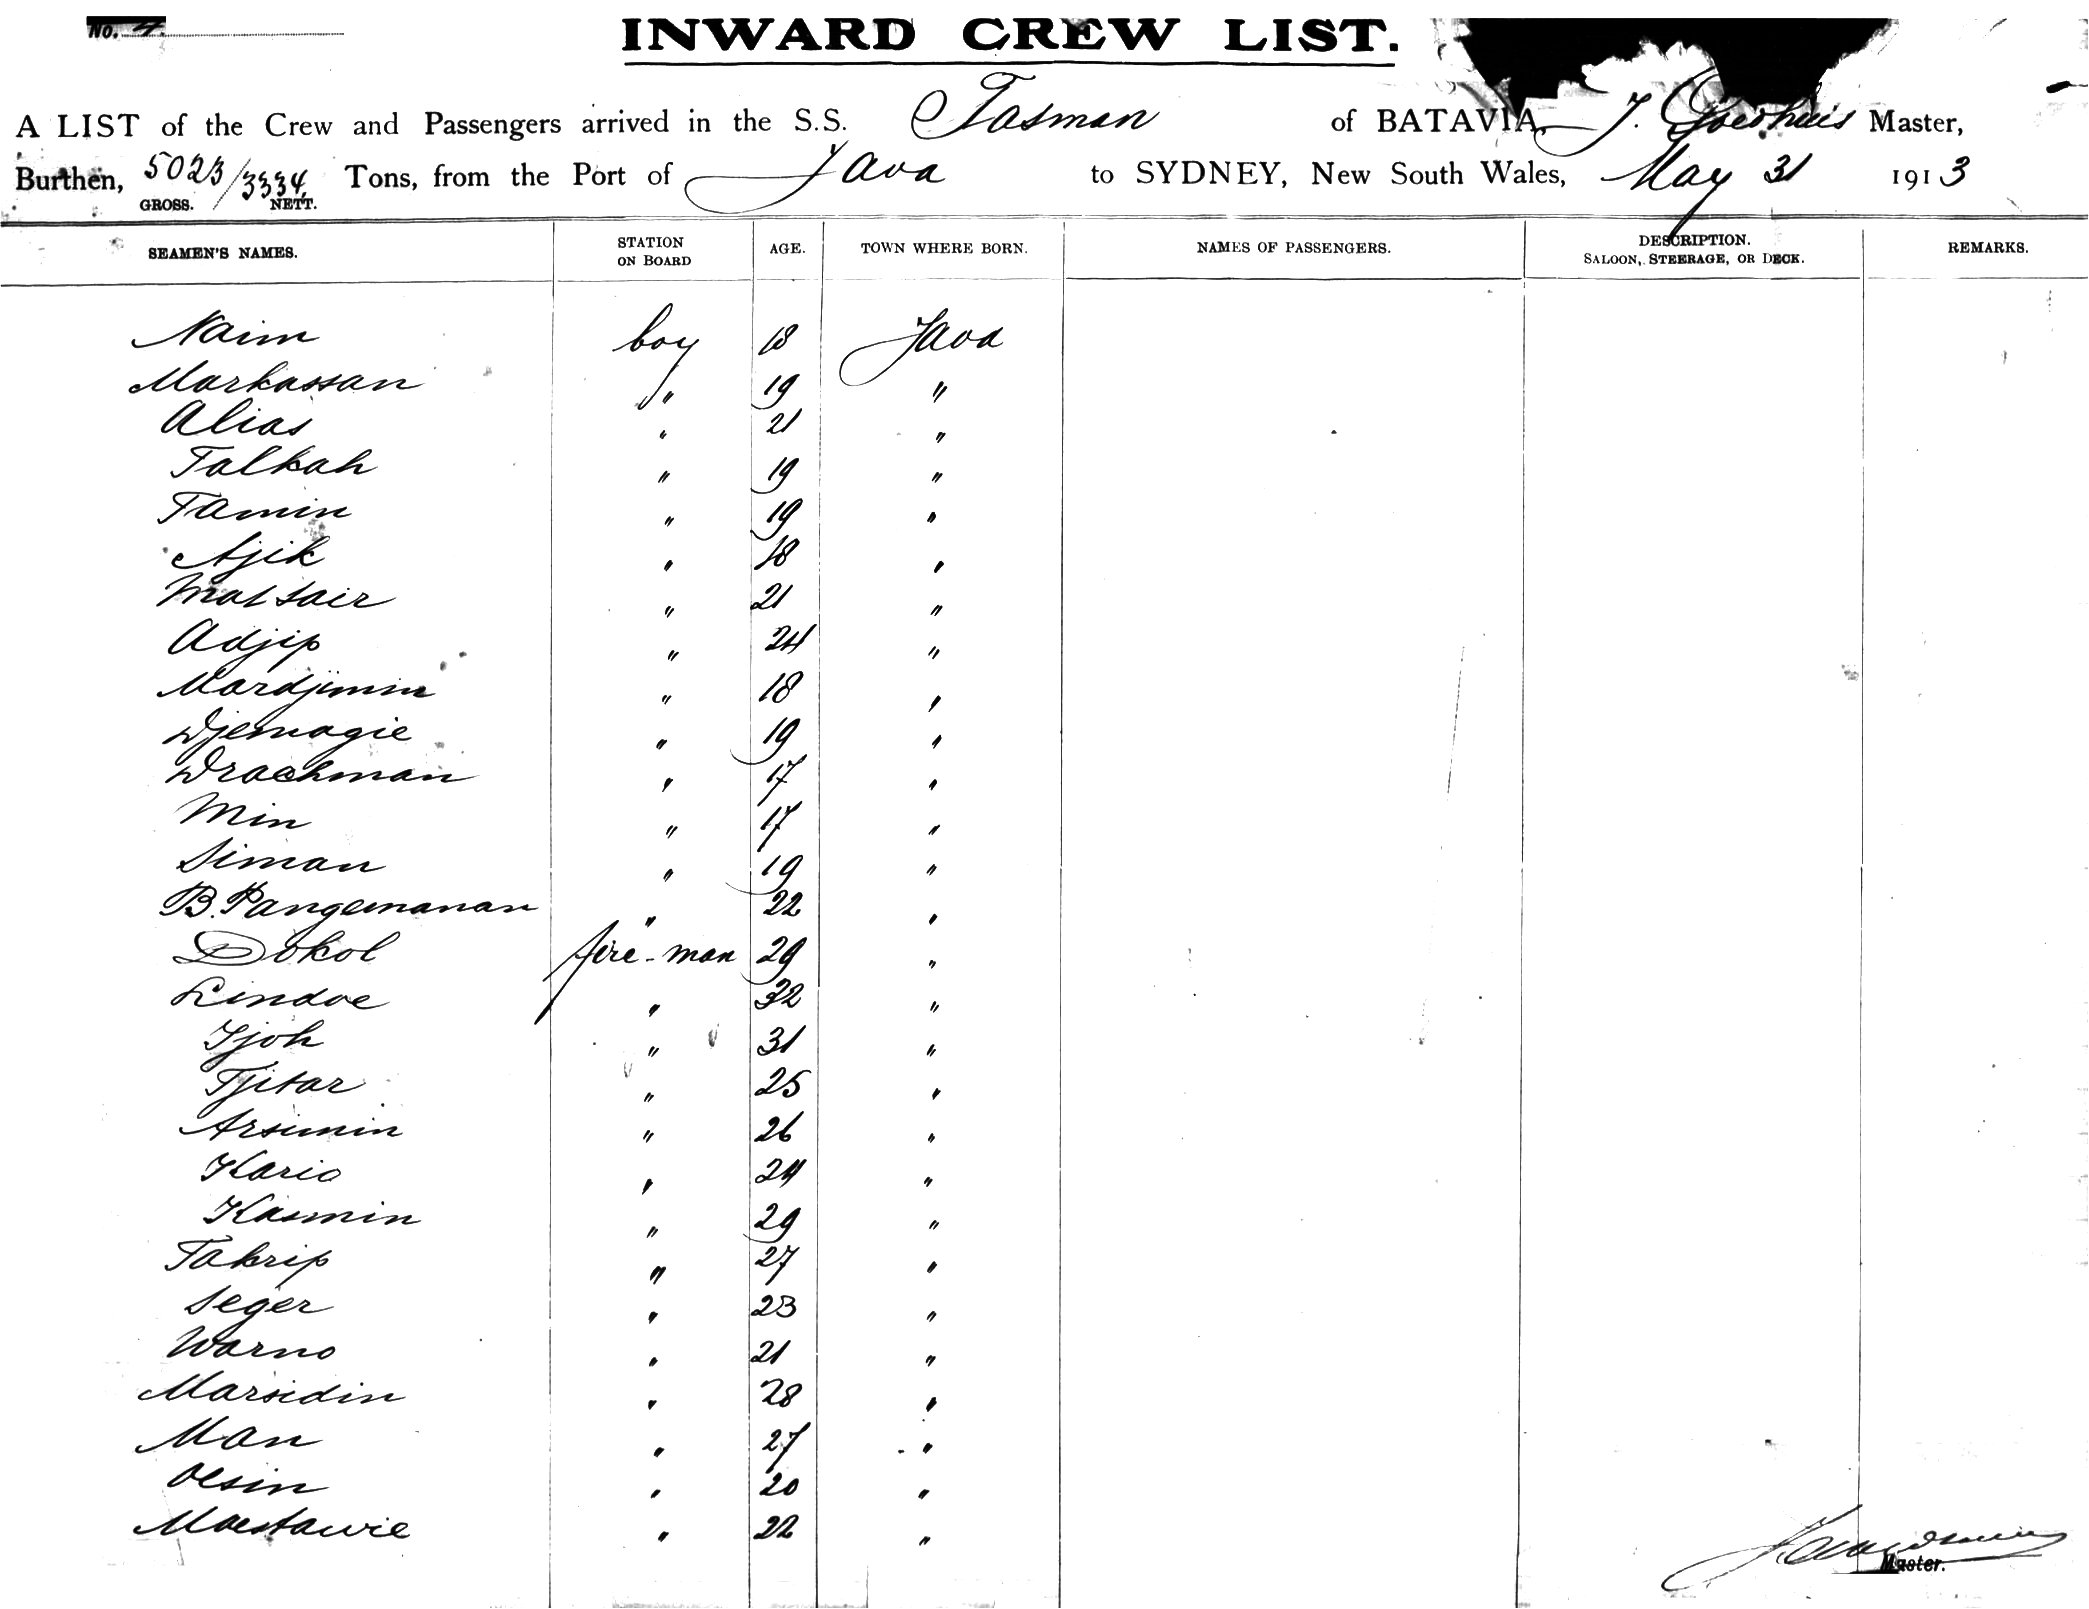 No. 4.
INWARD CREW LIST.
A LIST of the Crew and Passengers arrived in the S.S. Tasman of BATAVIA, J. Master,
Burthen, 5023/3334 Tons, from the Port of Java to SYDNEY, New South Wales, May 31 1913
GROSS. NETT.
SEAMEN'S NAMES. STATION ON BOARD AGE. TOWN WHERE BORN. NAMES OF PASSENGERS. DESCRIPTION. SALOON, STEERAGE, OR DECK. REMARKS.
Naim boy 18 Java
Markassan " 19 "
Alias " 21 "
Talkah " 19 "
Tamin " 19 "
Ajik " 18 "
Matsair " 21 "
Adjip " 24 "
Mardjimin " 18 "
Djemagie " 19 "
Drachman " 17 "
Min " 17 "
Siman " 19 "
B. Pangemanan " 22 "
Dokol fire-man 29 "
Lindoe " 32 "
Tjoh " 31 "
Tjitar " 25 "
Arsimin " 26 "
Kario " 24 "
Kasmin " 29 "
Takrip " 27 "
Seger " 23 "
Warno " 21 "
Marsidin " 28 "
Man " 27 "
Oesin " 20 "
Moestawie " 22 "
Master.